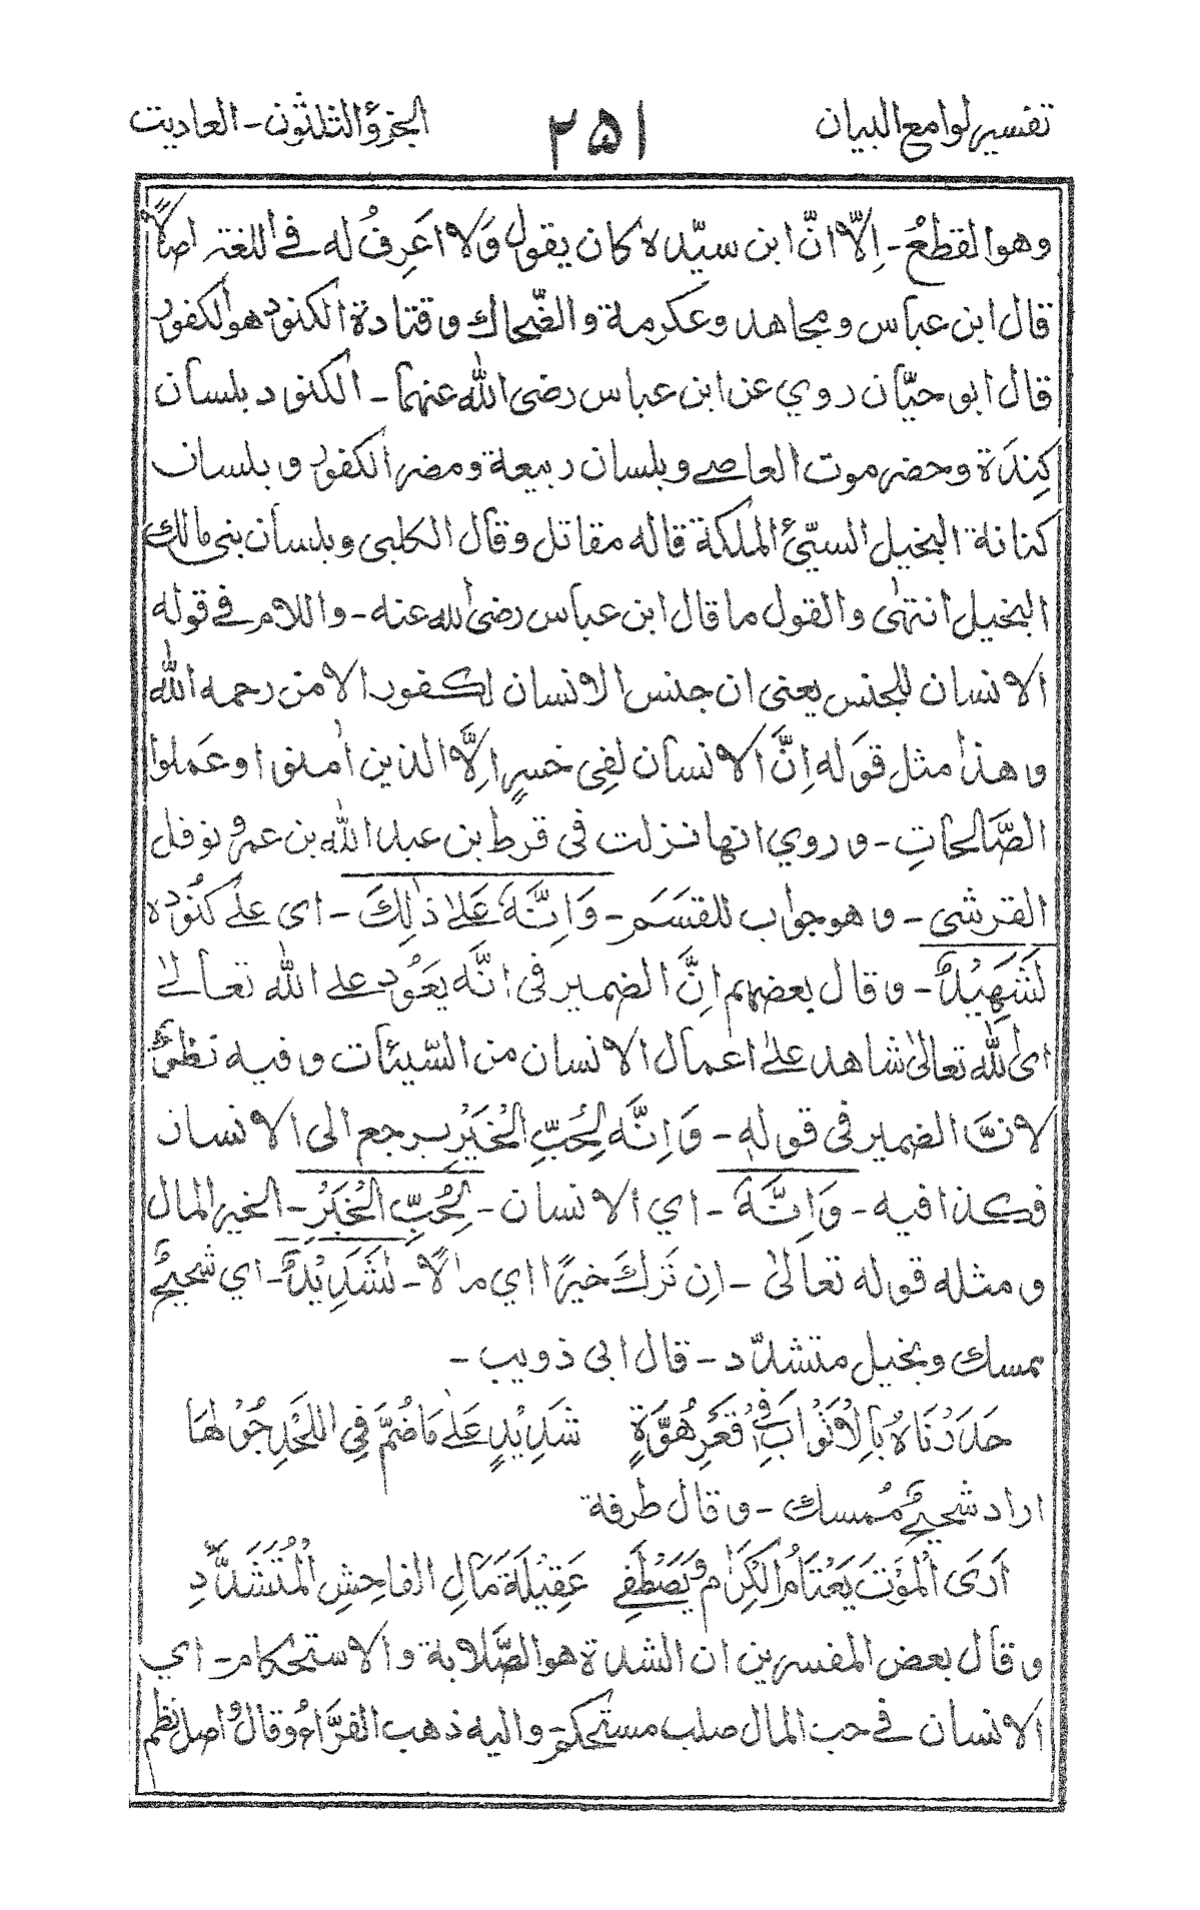 تفسير لوامع البيان ٢٥١ الجزؤ الثلثون - العاديت
وهو القطعُ - اِلّا انّ ابن سيّده كان يقول وَلا اعَرِفُ له في اللغته اصلاً
قال ابن عباس و مجاهد و عكرمة و الضّحاك و قتادة الكنود هو الكفود
قال ابو حيّان روي عن ابن عباس رضى الله عنهما - الكنود بلسان
كِندَة و حضرموت العاصے و بلسان ربيعة و مضر الكفود و بلسان
كنانة البخيل السيّئ الملكة قاله مقاتل و قال الكلبى و بلسان بنى مالك
البخيل انتهٰى و القول ما قال ابن عباس رضى الله عنه - و اللام في قوله
الانسان للجنس يعنى ان جنس الانسان لكفور الا من رحمه الله
و هذا مثل قوَله اِنَّ الانسان لفِى خسرٍ اِلَّا الذين اٰمنوا و عَملوا
الصَّالحاتِ - و روي انها نزلت فى قرط بن عبد الله بن عمرو نوفل
القرشى - و هو جواب للقسَم - وَ اِنَّهٗ عَلےٰ ذٰلِكَ - اى علے كنُوده
لَشَهِيْدٌ - و قال بعضهم اِنَّ الضمير فى اِنَّه يعَوُد علے الله تعالےٰ
اى الله تعالىٰ شاهد علےٰ اعمال الانسان من السّيئات و فيه نظرٌ
لانَّ الضمير فى قوله - وَ اِنَّه لِحُبِّ الْخَيْرِ يرجع الى الانسان
فكذا فيه - وَ اِنَّهٗ - اي الانسان - لِحُبِّ الْخَيْرِ - الخير المال
و مثله قوله تعالىٰ - اِن تَركَ خيرًا اي مالًا - لَشَدِيْدٌ - اي شحيحٌ
ممسك و بخيل متشدّد - قال ابى ذويب -
حَدَدْنَاهُ بِالْاَثْوَابِ فِي قَعْرِ هُوَّةٍ شَدِيْدٍ عَلےٰ مَا ضُمَّ فِي اللَّحْدِ جُوْلهَا
اراد شحيحٌ مُمسك - و قال طرفة
اَرَى الْمَوْتَ يَعْتَامُ الْكِرَامَ وَ يَصْطَفِے عَقِيْلَةَ مَالِ الفاحِشِ الْمُتَشَدَّدِ
و قال بعض المفسرين ان الشدة هو الصَّلابة و الاستحكام - اي
الانسان في حب المال صلب مستحكم - و اليه ذهب الفرَّاءُ و قال اصل نظم